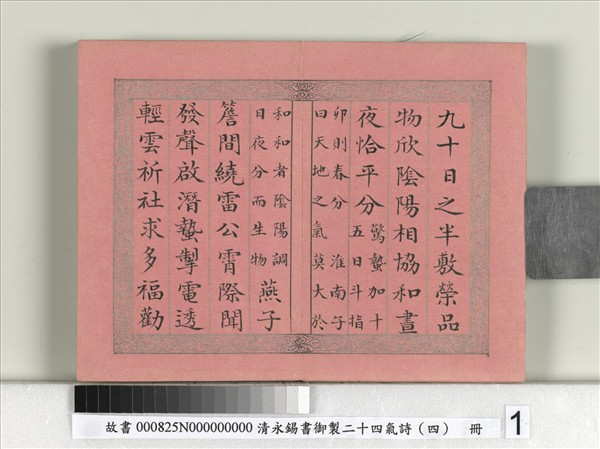 九十日之半敷榮品
物欣陰陽相協和晝
夜恰平分
驚蟄加十
五日斗指
卯則春分 淮南子
曰天地之氣莫大於
和和者陰陽調
日夜分而生物
燕子
簷間繞雷公霄際聞
發聲啟潛蟄掣電透
輕雲祈社求多福勸
故書 000825N000000000 清永錫書御製二十四氣詩（四） 冊
1